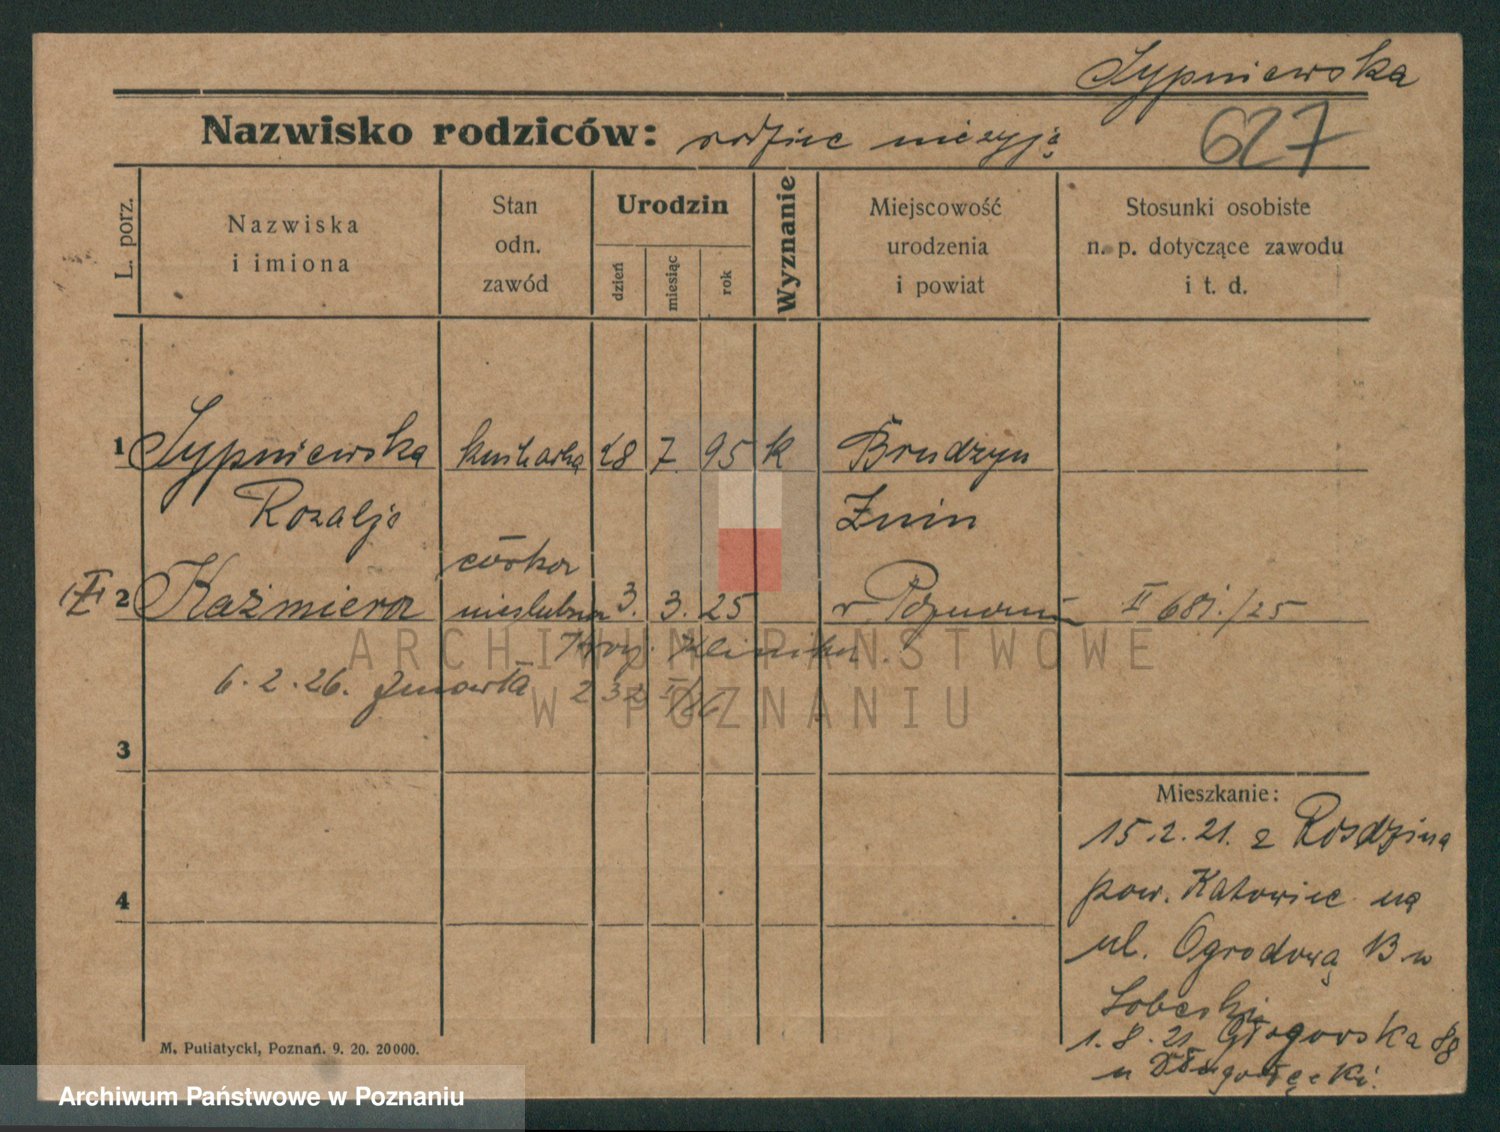 Sypniewska
Nazwisko rodziców: rodzice nieżyją
627
L. porz.
Nazwiska
i imiona
Stan
odn.
zawód
Urodzin
dzień
miesiąc
rok
Wyznanie
Miejscowość
urodzenia
i powiat
Stosunki osobiste
n. p. dotyczące zawodu
i t. d.
1 Sypniewska kucharka 28 7. 95 k Brudzyn
Rozalja Żnin
córka
2 Kaźmiera nieślubna 3. 3. 25 w Poznaniu II 681./25
Klinika.
6.2.26. zmarła 232 II/26
3
4
Mieszkanie:
15.2.21. z Rosdzina
pow. Katowice na
ul. Ogrodową 13 u
1.8.21 Głogowska 88
u
M. Putiatycki, Poznań. 9. 20. 20000.
ARCHIWUM PAŃSTWOWE
W POZNANIU
Archiwum Państwowe w Poznaniu